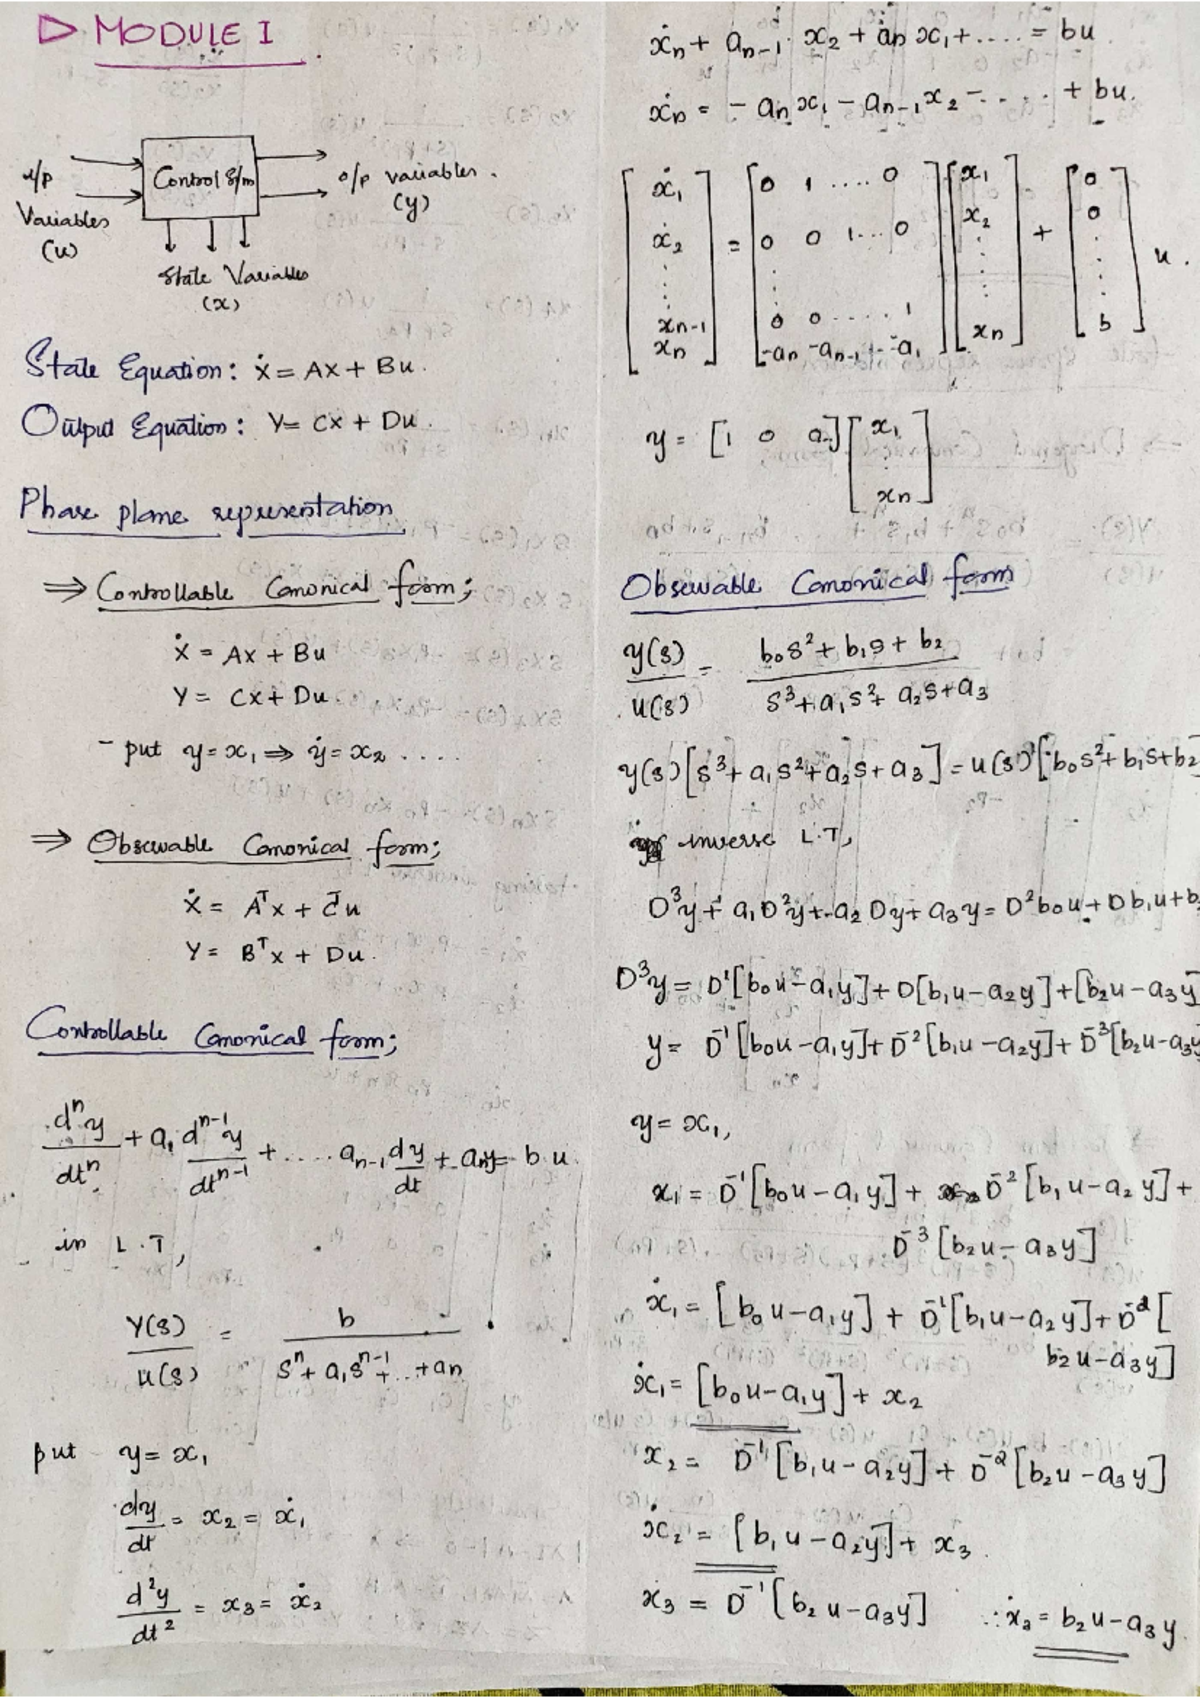 ▷ MODULE I
i/p Variables (u)
Control S/m
o/p variables. (y)
State Variables (x)
State Equation: ẋ = Ax + Bu.
Output Equation: Y = Cx + Du.
Phase plane representation
⇒ Controllable Canonical form;
ẋ = Ax + Bu
Y = Cx + Du.
- put y = x₁ ⇒ ẏ = x₂ ....
⇒ Observable Canonical form;
ẋ = Aᵀx + Cᵀu
Y = Bᵀx + Du.
Controllable Canonical form;
dⁿy/dtⁿ + a₁ dⁿ⁻¹y/dtⁿ⁻¹ + .... aₙ₋₁ dy/dt + aₙy = b u.
in L.T,
Y(s)/u(s) = b / (sⁿ + a₁sⁿ⁻¹ + ... + aₙ)
put y = x₁
dy/dt = x₂ = ẋ₁
d²y/dt² = x₃ = ẋ₂
ẋₙ + aₙ₋₁ x₂ + aₙ x₁ + .... = bu
ẋₙ = - aₙ x₁ - aₙ₋₁ x₂ - ..... + bu.
[ẋ₁ ẋ₂ ⋮ xₙ₋₁ xₙ] = [0 1 .... 0
0 0 1... 0
⋮
0 0 ..... 1
-aₙ -aₙ₋₁ -a₁] [x₁ x₂ ⋮ xₙ] + [0 0 ⋮ b] u.
y = [1 0 a] [x₁ ⋮ xₙ]
Observable Canonical form
y(s)/u(s) = (b₀s² + b₁s + b₂) / (s³ + a₁s² + a₂s + a₃)
y(s)[s³ + a₁s² + a₂s + a₃] = u(s)[b₀s² + b₁s + b₂
inverse L.T,
D³y + a₁D²y + a₂ Dy + a₃y = D²b₀u + Db₁u + b
D³y = D¹[b₀u - a₁y] + D[b₁u - a₂y] + [b₂u - a₃y]
y = D⁻¹[b₀u - a₁y] + D⁻²[b₁u - a₂y] + D⁻³[b₂u - a₃y
y = x₁,
x₁ = D⁻¹[b₀u - a₁y] + D⁻²[b₁u - a₂y] +
D⁻³[b₂u - a₃y]
ẋ₁ = [b₀u - a₁y] + D⁻¹[b₁u - a₂y] + D⁻²[
b₂u - a₃y]
ẋ₁ = [b₀u - a₁y] + x₂
x₂ = D⁻¹[b₁u - a₂y] + D⁻²[b₂u - a₃y]
ẋ₂ = [b₁u - a₂y] + x₃.
x₃ = D⁻¹[b₂u - a₃y] ∴ ẋ₃ = b₂u - a₃y.